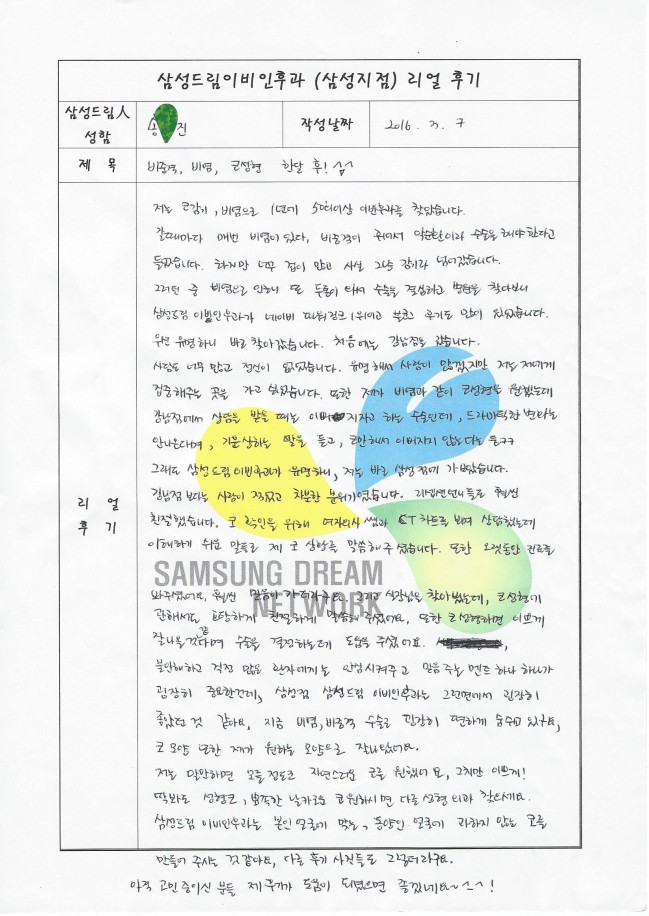 삼성드림이비인후과 (삼성지점) 리얼 후기
삼성드림人
성함
송 진
작성날짜
2016. 3. 7
제 목
비중격, 비염, 코성형 한달 후! ^^
리 얼
후 기
저는 코감기, 비염으로 1년에 50번이상 이비인후과를 찾았습니다.
갈때마다 매번 비염이 있다, 비중격이 휘어서 수술을 해야 한다고
들었습니다. 하지만 너무 겁이 많고 사실 그냥 감기라 넘어갔습니다.
그러던 중 비염으로 인해 또 두통이 와서 수술을 결심하고 병원을 찾아보니
삼성드림 이비인후과가 네이버 파워링크 1위이고 블로그 후기도 많이 있었습니다.
우선 유명하니 바로 찾아갔습니다. 처음에는 강남점을 갔습니다.
사람도 너무 많고 정신이 없었습니다. 유명해서 사람이 많겠지만 저는 저에게
집중해주는 곳을 가고 싶었습니다. 또한 제가 비염과 같이 코성형도 원했는데
강남점에서 상담을 받을 때는 이뻐지자고 하는 수술인데, 드라마틱한 변화는
안나온다며, 기분상하는 말을 듣고, 코만해서 이뻐지지 않는다는 둥ㅋㅋ
그래도 삼성드림이비인후과가 유명하니, 저는 바로 삼성점에 가봤습니다.
강남점 보다는 사람이 적었고 차분한 분위기였습니다. 언니들도 훨씬
친절했습니다. 코 확인을 위해 여자의사 쌤과 CT차트를 보며 상담했는데
이해하기 쉬운 말들로 제 코 상황을 말씀해 주셨습니다. 또한 오랫동안 진료를
봐주셨어요, 훨씬 믿음이 가더라구요. 그리고 실장님을 찾아뵀는데, 코성형에
관해서도 친절하게 말씀해 주셨어요, 또한 코성형하면 이쁘게
잘나올 것 같다며 수술을 결정하는데 도움을 주셨어요.
불안해하고 걱정 많은 환자에게는 안심시켜주고 믿음주는 멘트 하나 하나가
굉장히 중요한건데, 삼성점 삼성드림 이비인후과는 그런면에서 굉장히
좋았던 것 같아요, 지금 비염, 비중격 수술로 굉장히 편하게 숨쉬고 있구요,
코 모양 또한 제가 원하는 모양으로 잘나왔어요.
저는 말안하면 모를정도로 자연스러운 코를 원했어요, 그치만 이쁘게!
딱봐도 성형코, 뾰족한 날카로운 코 원하시면 다른 성형외과 찾으세요.
삼성드림 이비인후과는 본인 얼굴에 맞는, 동양인 얼굴에 과하지 않는 코를
만들어 주시는 것 같아요, 다른 후기 사진들도 그렇더라구요.
아직 고민 중이신 분들 제 후기가 도움이 되었으면 좋겠네요~^^!
SAMSUNG DREAM
NETWORK